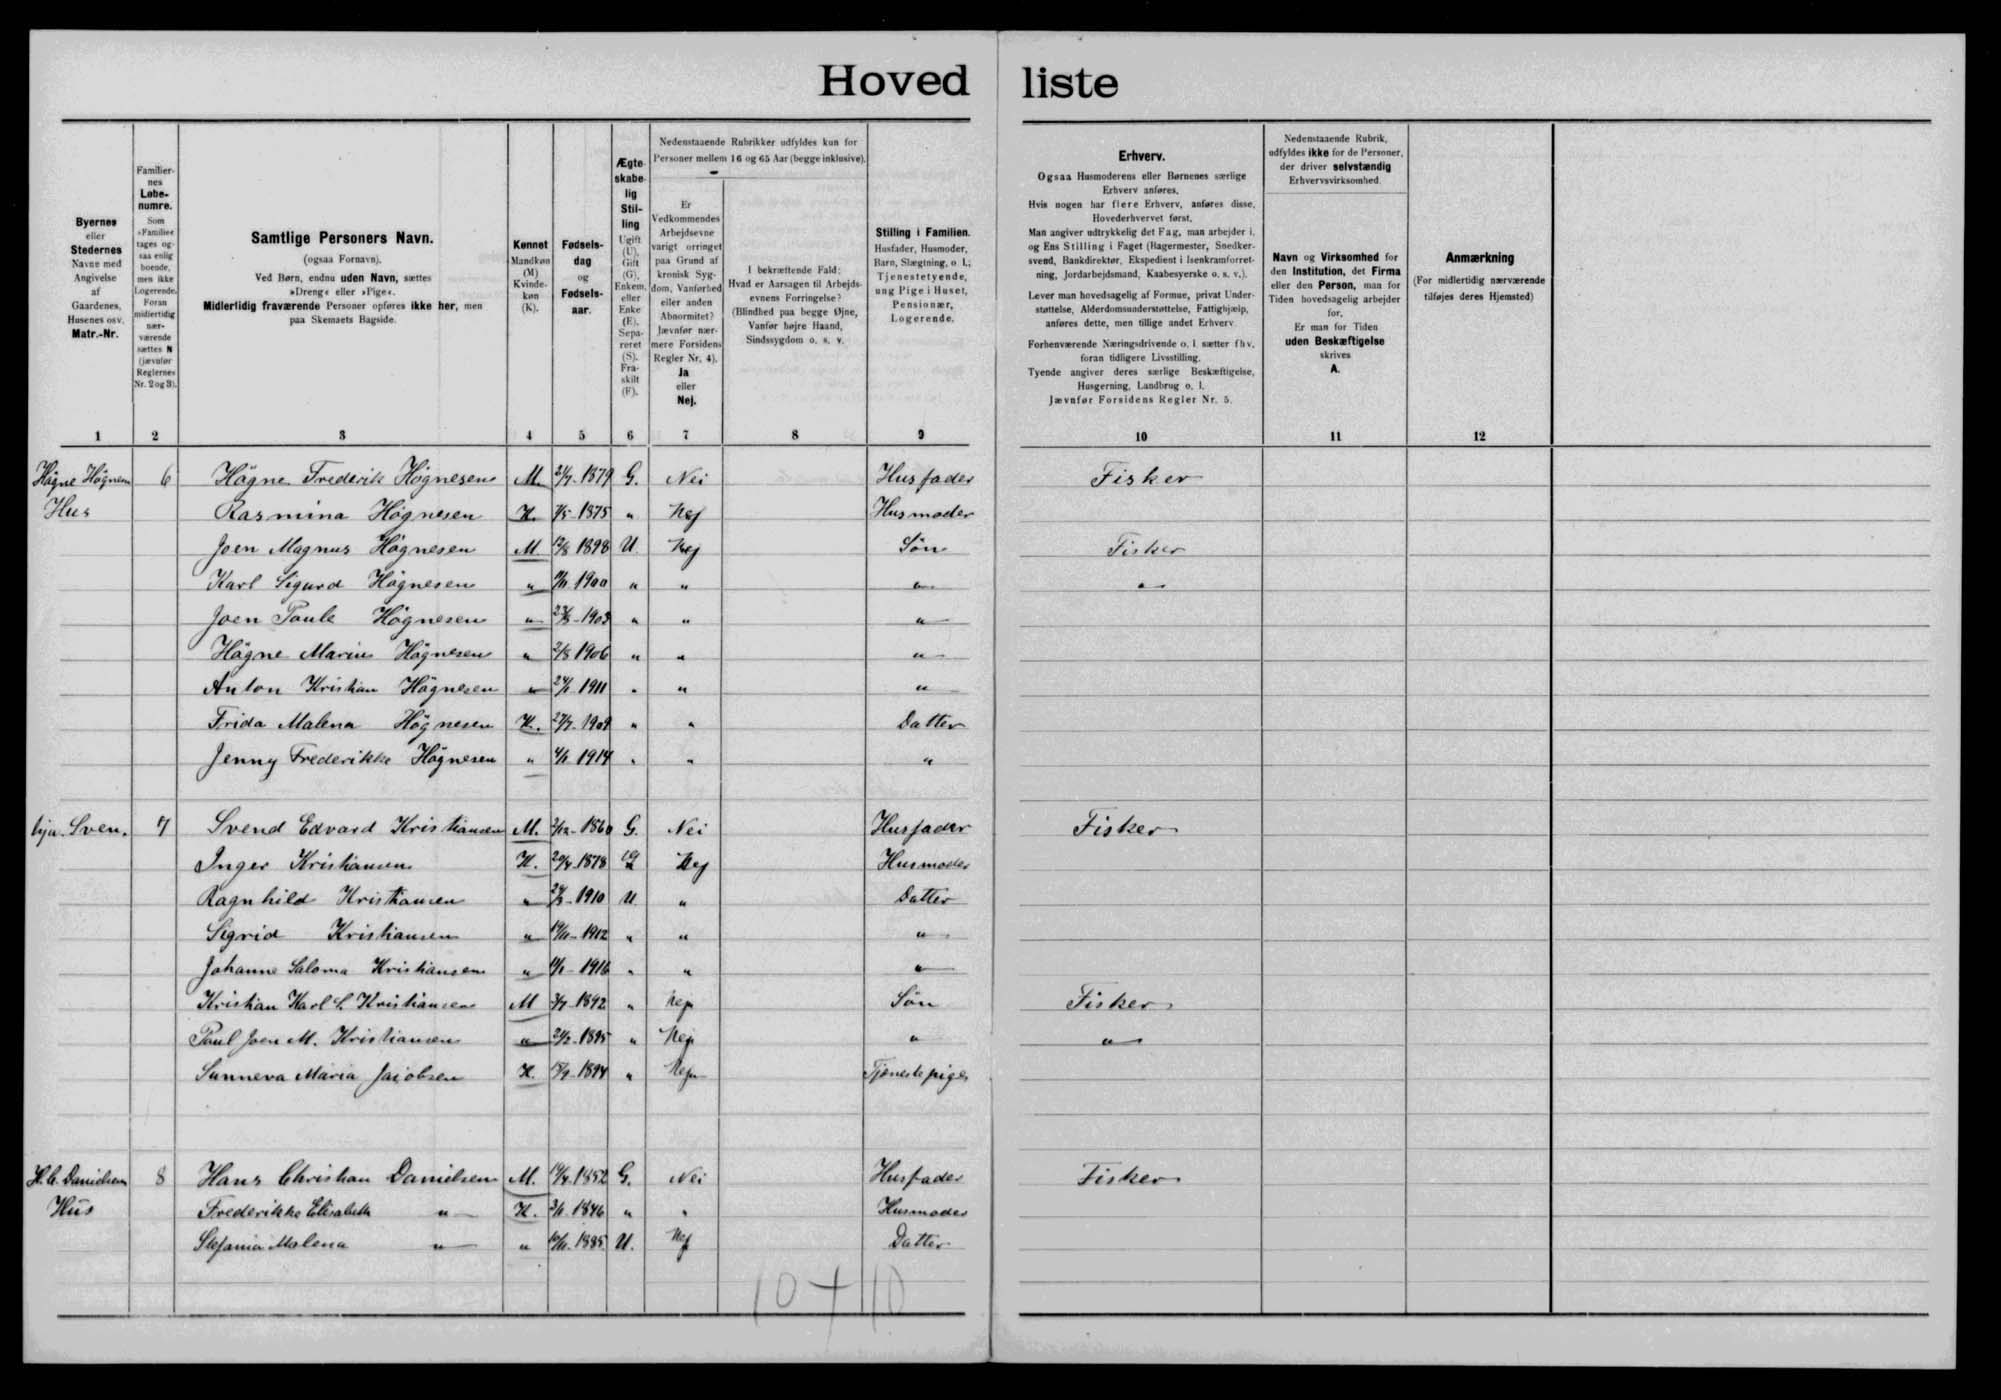 Hovedliste
Byernes eller Stedernes Navne med Angivelse af Gaardenes, Husenes osv. Matr.-Nr.
Familiernes Løbenumre. Som »Familie« tages ogsaa enlig boende, men ikke Logerende. Foran midlertidig nærværende sættes N (jævnfør Reglernes Nr. 2 og 3).
Samtlige Personers Navn. (ogsaa Fornavn). Ved Børn, endnu uden Navn, sættes »Dreng« eller »Pige«. Midlertidig fraværende Personer opføres ikke her, men paa Skemaets Bagside.
Kønnet Mandkøn (M) Kvindekøn (K).
Fødselsdag og Fødselsaar.
Ægteskabelig Stilling Ugift (U), Gift (G), Enkem. eller Enke (E), Separeret (S), Fraskilt (F).
Nedenstaaende Rubrikker udfyldes kun for Personer mellem 16 og 65 Aar (begge inklusive).
Er Vedkommendes Arbejdsevne varigt forringet paa Grund af kronisk Sygdom, Vanførhed eller anden Abnormitet? Jævnfør nærmere Forsidens Regler Nr. 4). Ja eller Nej.
I bekræftende Fald: Hvad er Aarsagen til Arbejdsevnens Forringelse? (Blindhed paa begge Øjne, Vanfør højre Haand, Sindssygdom o. s. v.
Stilling i Familien. Husfader, Husmoder, Barn, Slægtning, o. l.; Tjenestetyende, ung Pige i Huset, Pensionær, Logerende.
Erhverv.
Ogsaa Husmoderens eller Børnenes særlige Erhverv anføres.
Hvis nogen har flere Erhverv, anføres disse, Hovederhvervet først.
Man angiver udtrykkelig det Fag, man arbejder i, og Ens Stilling i Faget (Bagermester, Snedkersvend, Bankdirektør, Ekspedient i Isenkramforretning, Jordarbejdsmand, Kaabesyerske o. s. v.).
Lever man hovedsagelig af Formue, privat Understøttelse, Alderdomsunderstøttelse, Fattighjælp, anføres dette, men tillige andet Erhverv
Forhenværende Næringsdrivende o. l. sætter fhv. foran tidligere Livsstilling.
Tyende angiver deres særlige Beskæftigelse, Husgerning, Landbrug o. l.
Jævnfør Forsidens Regler Nr. 5.
Nedenstaaende Rubrik, udfyldes ikke for de Personer, der driver selvstændig Erhvervsvirksomhed.
Navn og Virksomhed for den Institution, det Firma eller den Person, man for Tiden hovedsagelig arbejder for,
Er man for Tiden uden Beskæftigelse skrives A.
Anmærkning (For midlertidig nærværende tilføjes deres Hjemsted)
1 2 3 4 5 6 7 8 9 10 11 12
Högne Högnesen 6 Högne Frederik Högnesen M. 1879 G. Nei Husfader Fisker
Hus Rasmina Högnesen K. 7/5-1875 " Nej Husmoder
Joen Magnus Högnesen M. 1898 U. Nej Søn Fisker
Karl Sigurd Högnesen " 1900 " " " "
Joen Poule Högnesen " 1903 " " "
Högne Marius Högnesen " 2/8 1906 " " "
Anton Kristian Högnesen " 1911 " " "
Frida Malena Högnesen K. 1909 " " Datter
Jenny Frederikke Högnesen " 1914 " " "
Sven. 7 Svend Edvard Kristiansen M. 2/12-1860 G. Nei Husfader Fisker
Inger Kristiansen K. 1878 G Nej Husmoder
Ragnhild Kristiansen " 1910 U. " Datter
Sigrid Kristiansen " 1912 " " "
Johanne Saloma Kristiansen " 1916 " " "
Kristian Karl S. Kristiansen M 1892 " Nej Søn Fisker
Poul Joen M. Kristiansen " 1895 " Nej " "
Sunneva Maria Jacobsen K. 1894 " Nej Tjenestepige
H. C. Danielsen 8 Hans Christian Danielsen M. 1852 G. Nei Husfader Fisker
Hus Frederikke Elisabeth " K. 1846 " " Husmoder
Stefania Malena " " 1885 U. Nej Datter
10 + 10